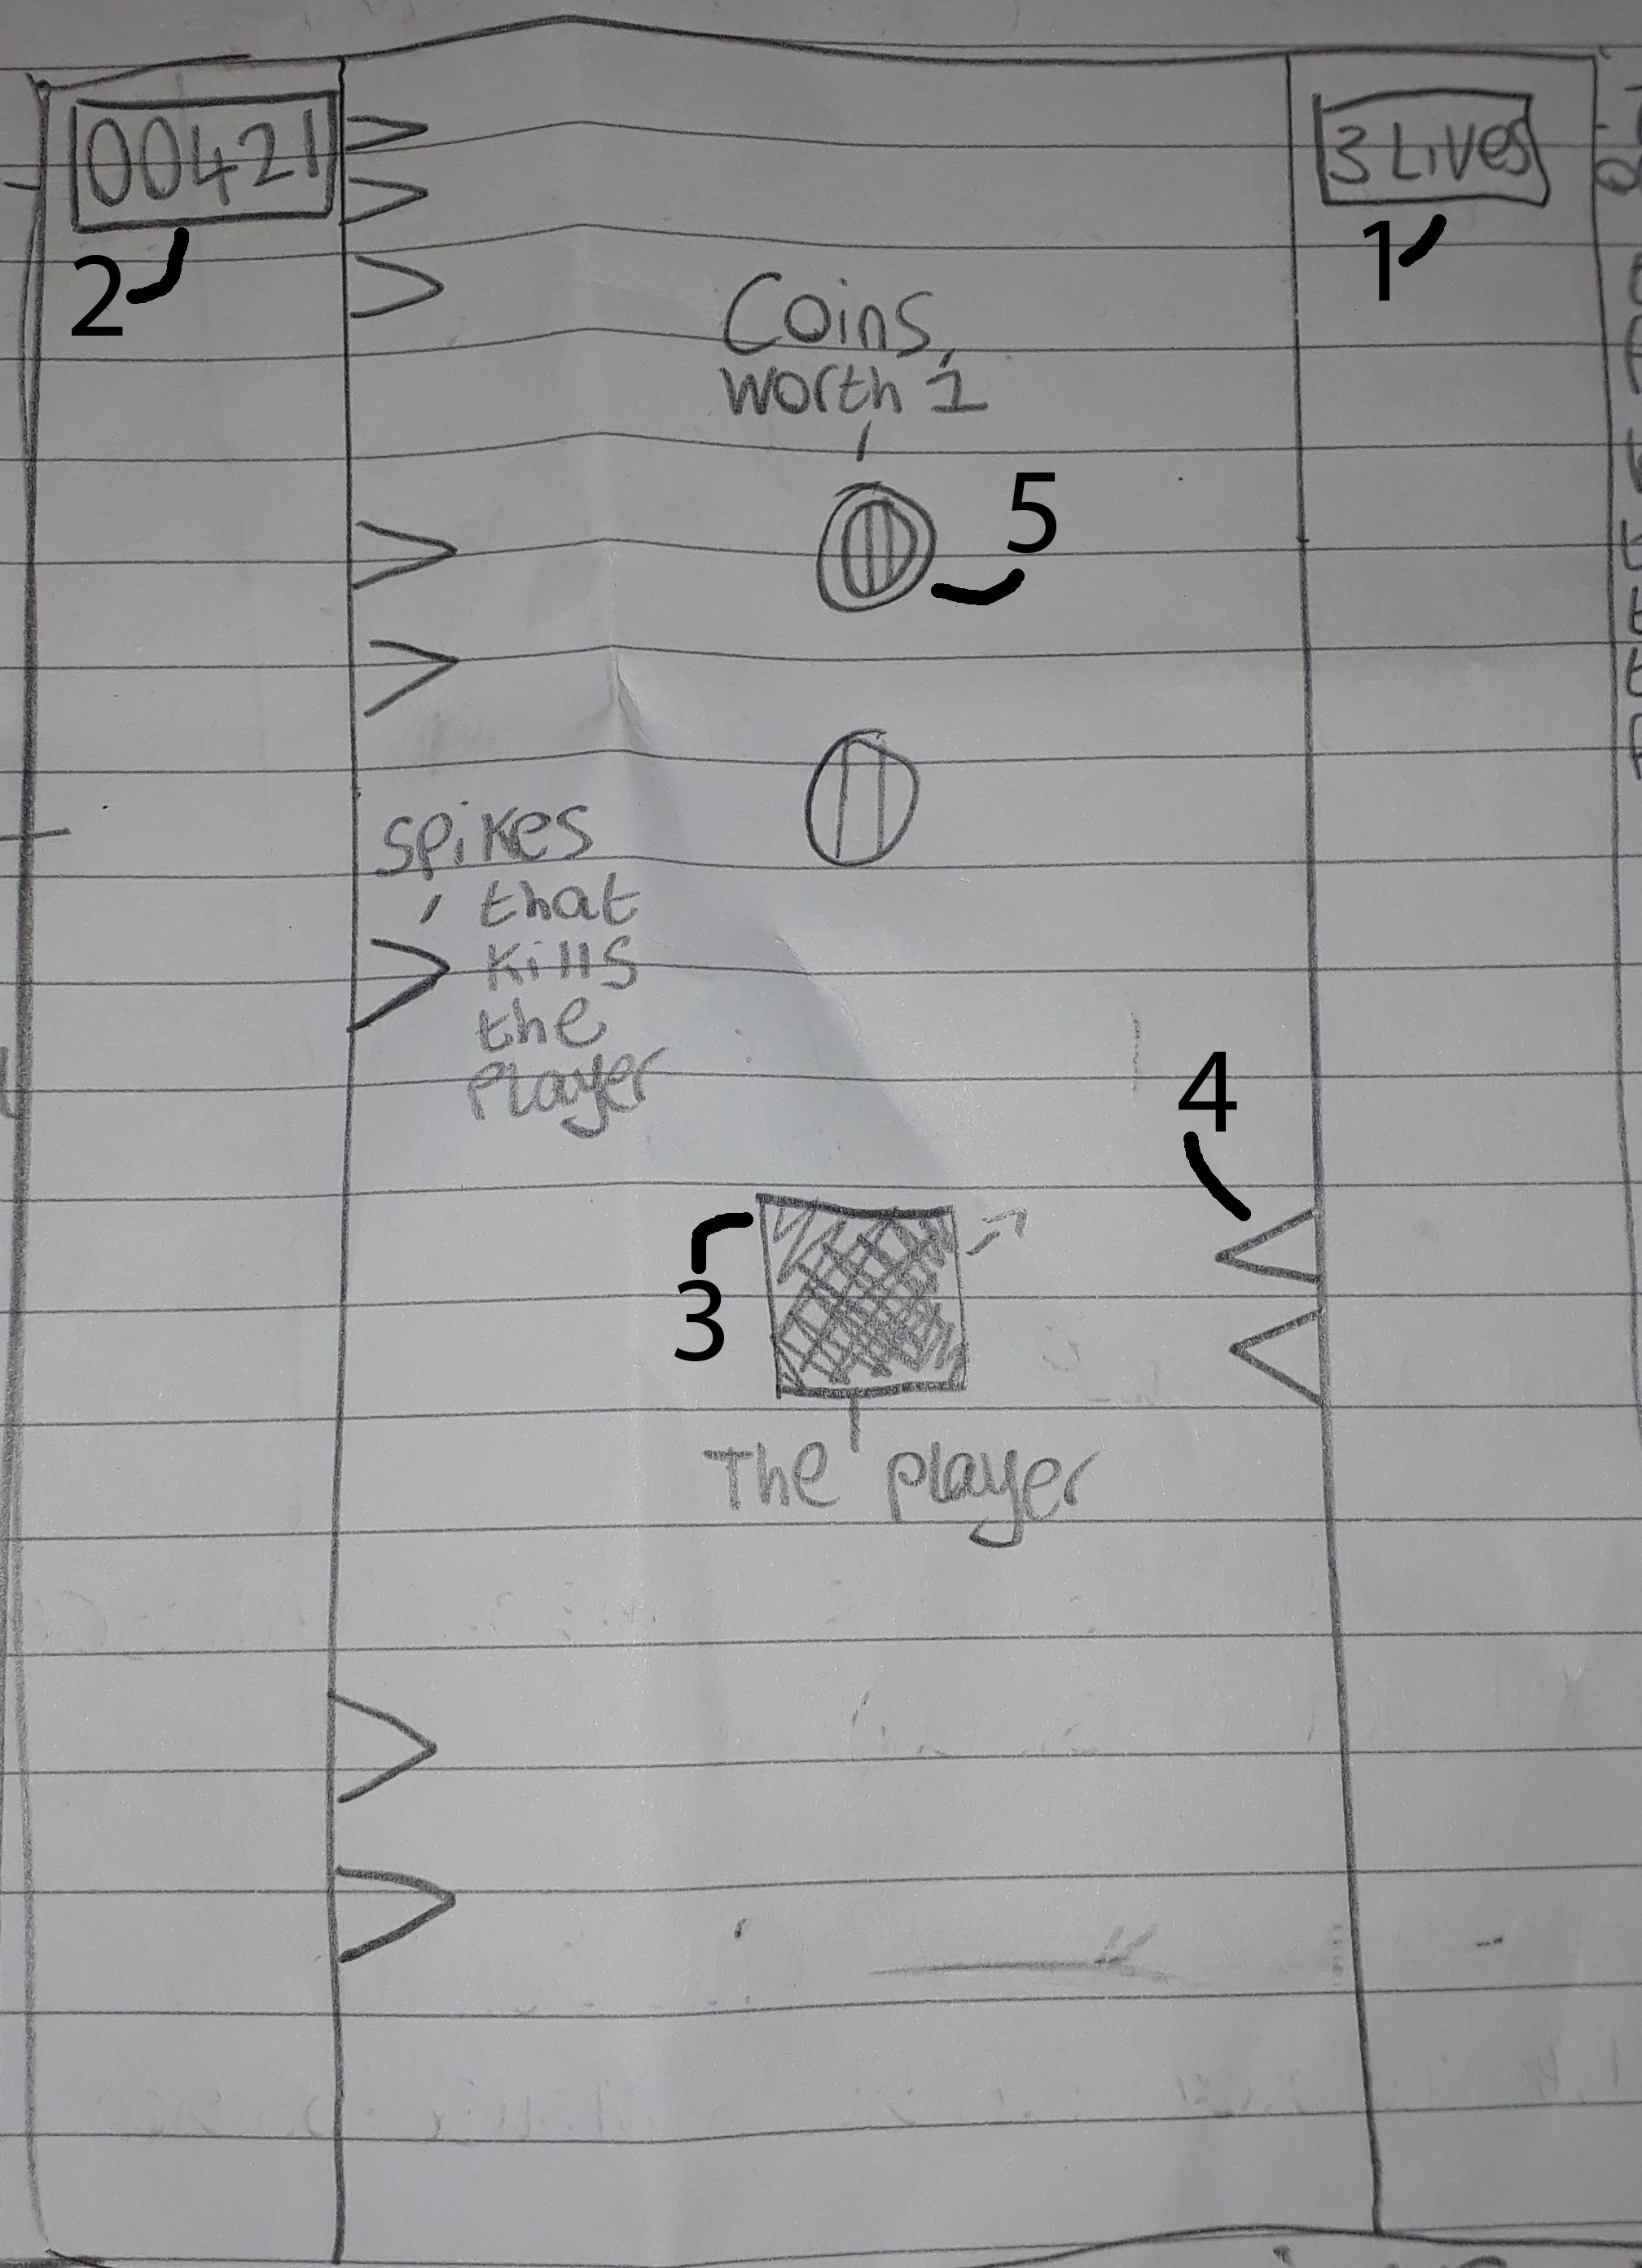 00421
3 Lives
2
1
Coins,
worth 1
5
Spikes
that
kills
the
player
4
3
The player